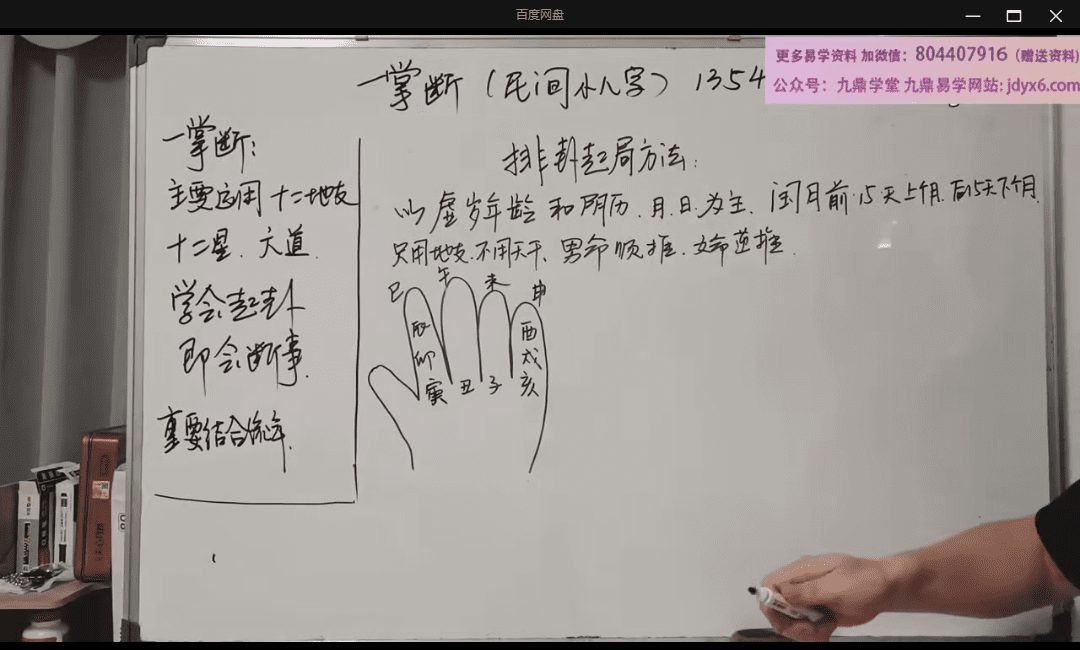 百度网盘
更多易学资料 加微信：804407916（赠送资料)
公众号：九鼎学堂 九鼎易学网站: jdyx6.com
一掌断（民间小八字）1354
一掌断：
主要运用十二地支
十二星、六道
学会起卦
即会断事.
重要结合流年.
排卦起局方法：
以虚岁年龄和阴历.月.日.为主、闰月前15天上个月.后15天下个月.
只用地支.不用天干、男命顺推、女命逆推.
巳 午 未 申
辰 酉
卯 戌
寅 丑 子 亥